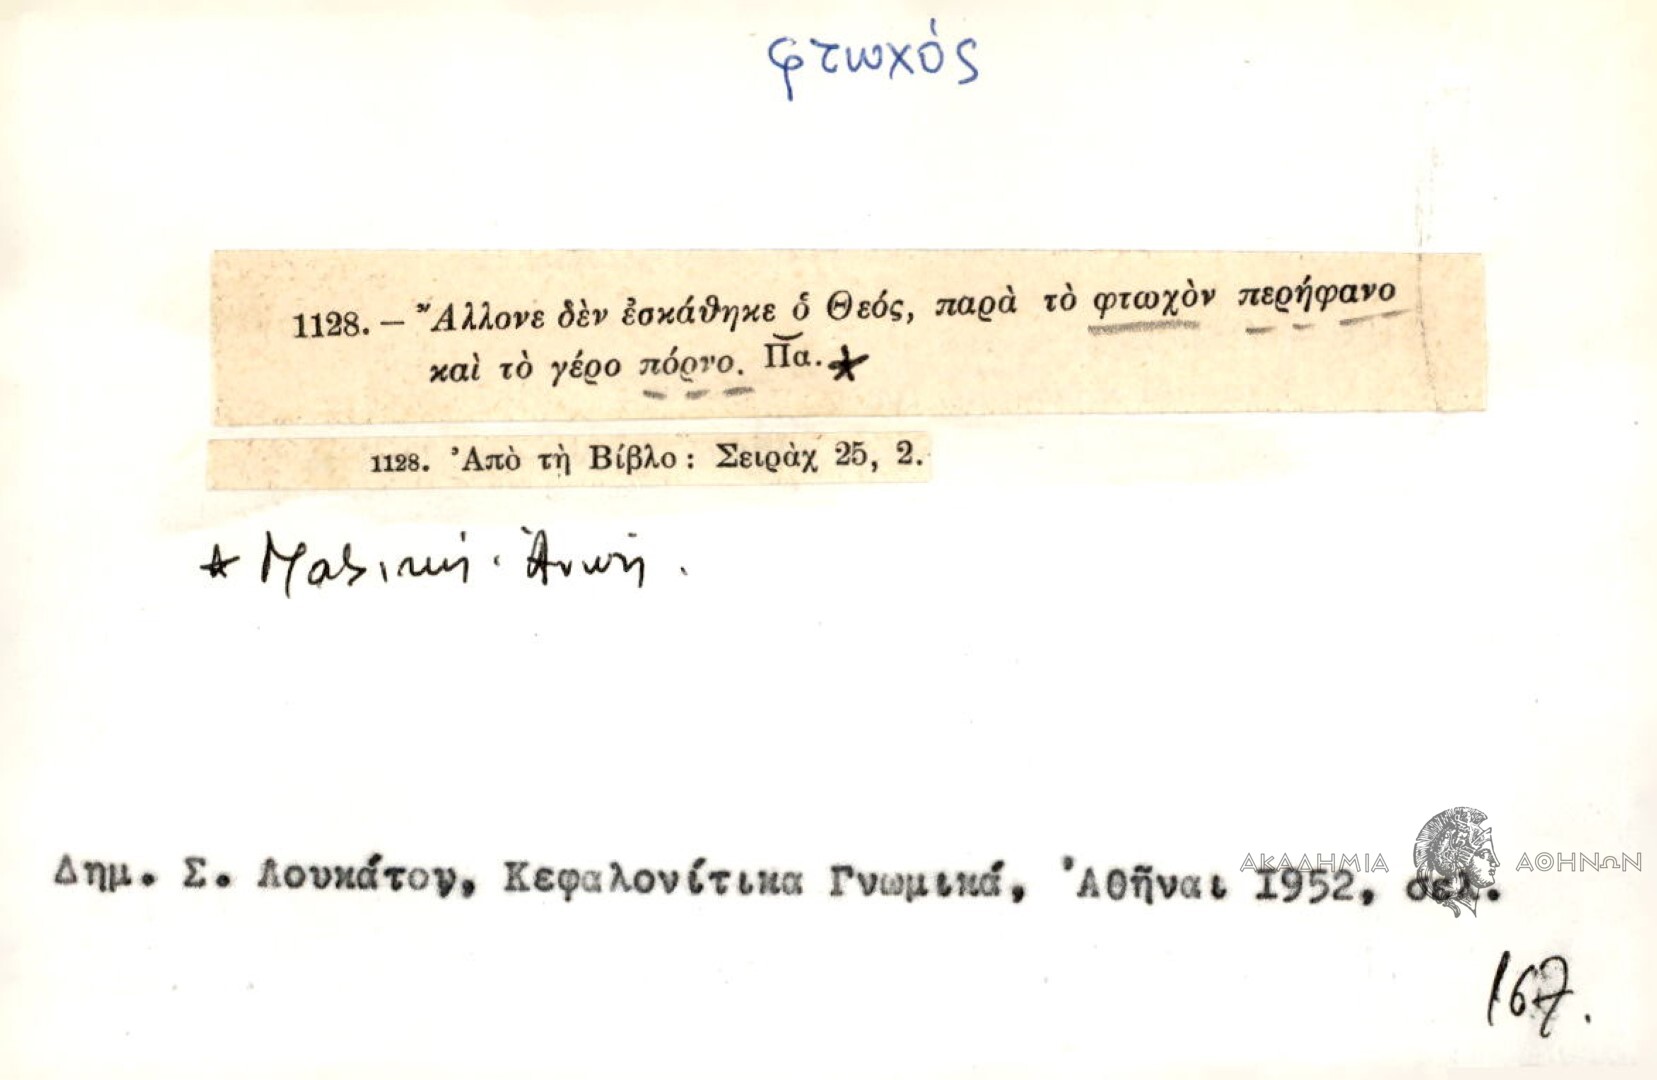 φτωχός
1128. – Ἄλλονε δὲν ἐσκάθηκε ὁ Θεός, παρὰ τὸ φτωχὸν περήφανο
καὶ τὸ γέρο πόρνο. Πα.*
1128. Ἀπὸ τὴ Βίβλο: Σειρὰχ 25, 2.
* Παλικὴ· Ἀνωὴ.
ΑΚΑΔΗΜΙΑ ΑΘΗΝΩΝ
Δημ. Σ. Λουκάτου, Κεφαλονίτικα Γνωμικά, Ἀθῆναι 1952, σελ.
167.